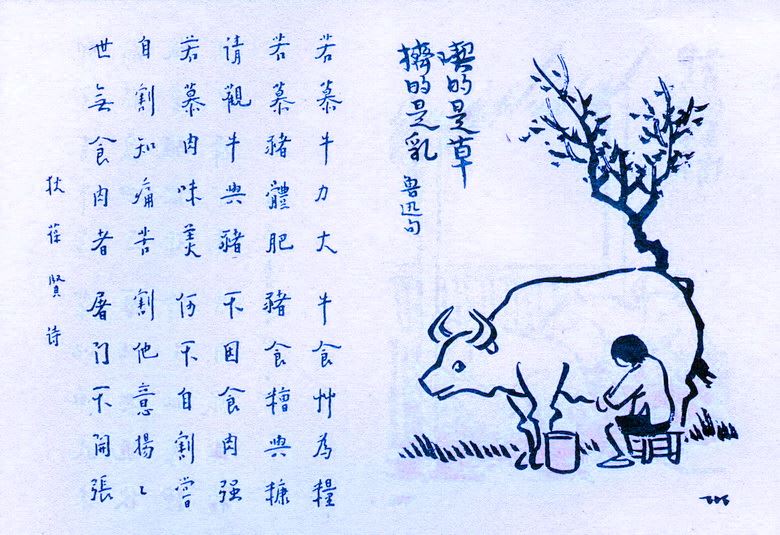 喫的是草
擠的是乳
魯迅句
若慕牛力大 牛食艸為糧
若慕豬體肥 豬食糟與糠
请觀牛與豬 不因食肉强
若慕肉味美 何不自割嘗
自割知痛苦 割他意揚〻
世無食肉者 屠门不開張
狄葆賢诗